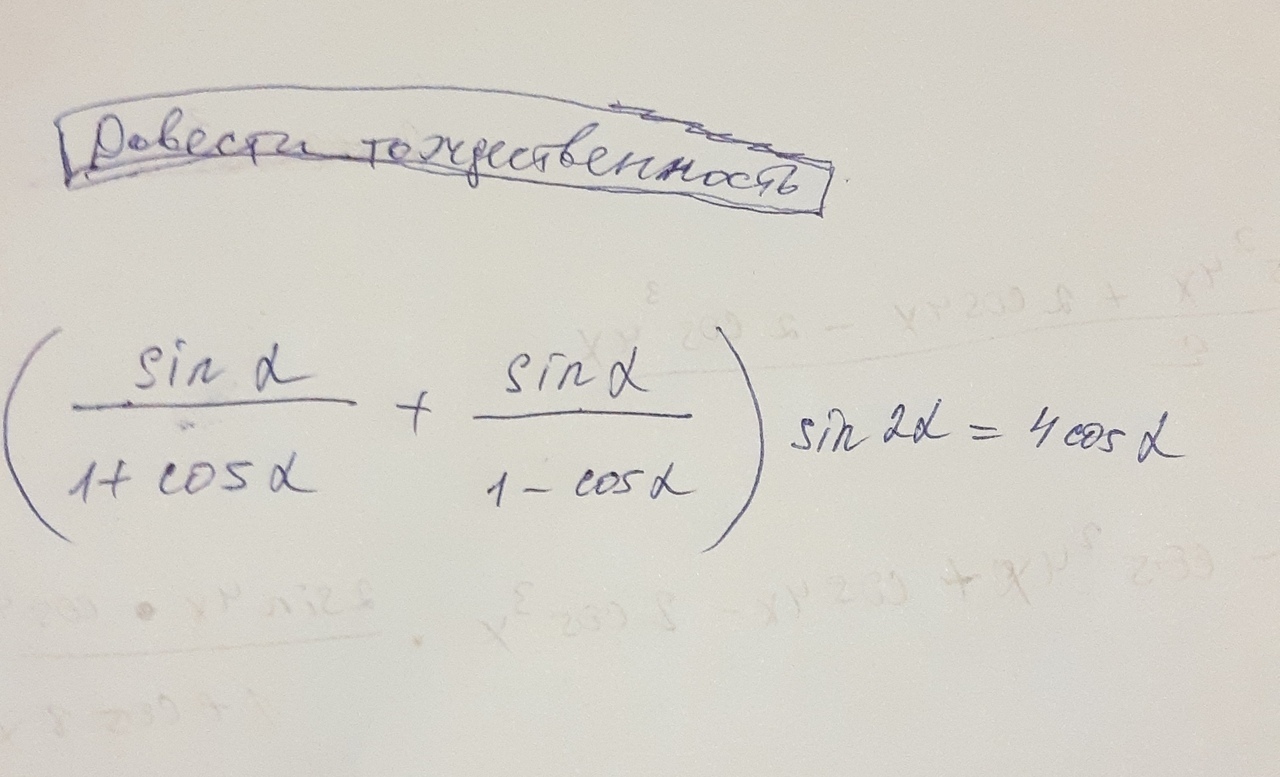 Довести тождественность
(sin α / (1 + cos α) + sin α / (1 - cos α)) sin 2α = 4 cos α